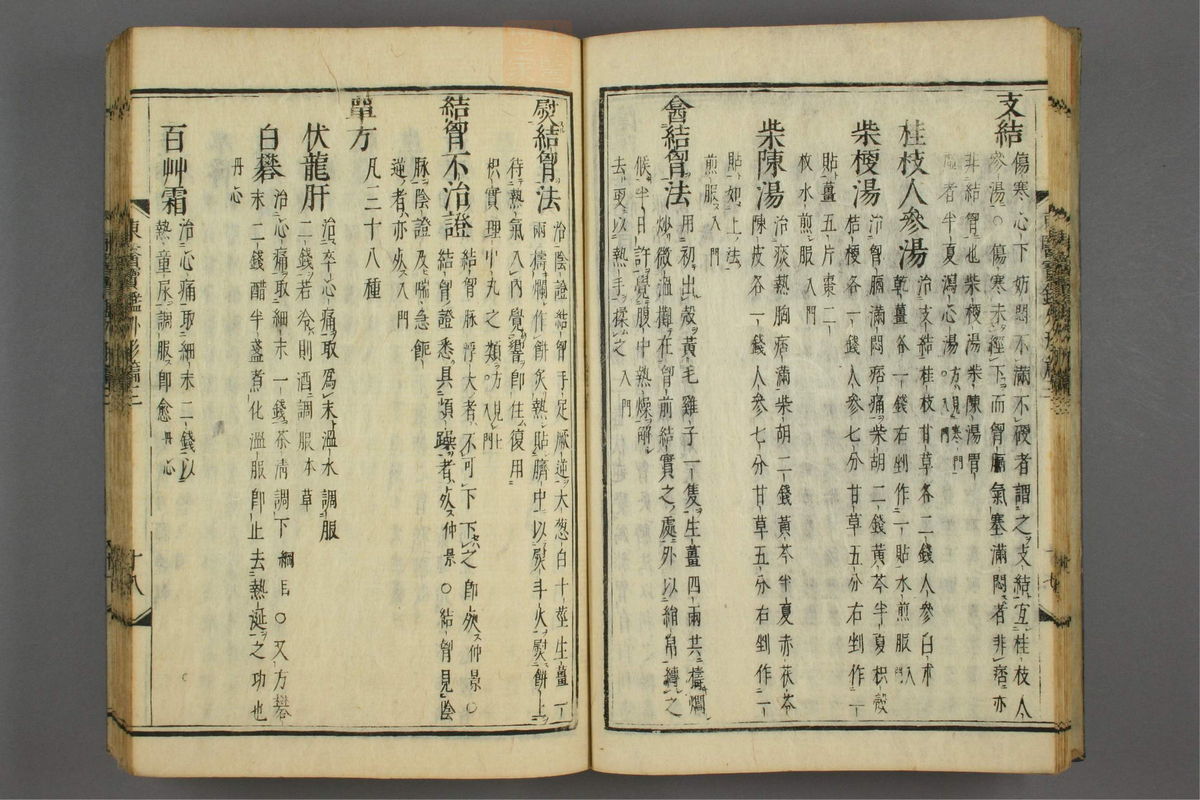 支結
傷寒心下妨悶不滿不硬者謂之支結宜桂枝人
參湯○傷寒未經下而胷膈氣塞滿悶者非痞亦
非結胷也柴梗湯柴陳湯胃
者半夏瀉心湯○入門 方見寒門
桂枝人參湯
治支結桂枝甘草各二錢人參白朮
乾薑各一錢右剉作一貼水煎服入門
柴梗湯
治胷膈滿悶痞痛柴胡二錢黃芩半夏枳殼
桔梗各一錢人參七分甘草五分右剉作一
貼薑五片棗二
枚水煎服入門
柴陳湯
治痰熱胸痞滿柴胡二錢黃芩半夏赤茯苓
陳皮各一錢人參七分甘草五分右剉作一
貼如上法
煎服入門
罯結胷法
用初出殼黃毛雞子一隻生薑四兩共擣爛
炒微溫攤在胷前結實之處外以絹帛縛之
候半日許覺腹中熱燥解
去更以熱手揉之入門
熨結胷法
治陰證結胷手足厥逆大葱白十莖生薑一
兩擣爛作餠炙熱貼臍中以熨斗火熨餠上
待熱氣入內覺響卽住復用
枳實理中丸之類方見上入門
結胷不治證
結胷脉浮大者不可下下之卽死仲景○
結胷證悉具煩躁者死仲景○結胷見陰
脉陰證及喘急
逆者亦死入門
單方
凡三十八種
伏龍肝
治卒心痛取爲末溫水調服
二錢若冷則酒調服本草
白礬
治心痛取細末一錢茶淸調下綱目○又方礬
末二錢醋半盞煮化溫服卽止去熱涎之功也
丹心
百艸霜
治心痛取細末二錢以
熱童尿調服卽愈丹心
東醫寶鑑外形篇三
十八